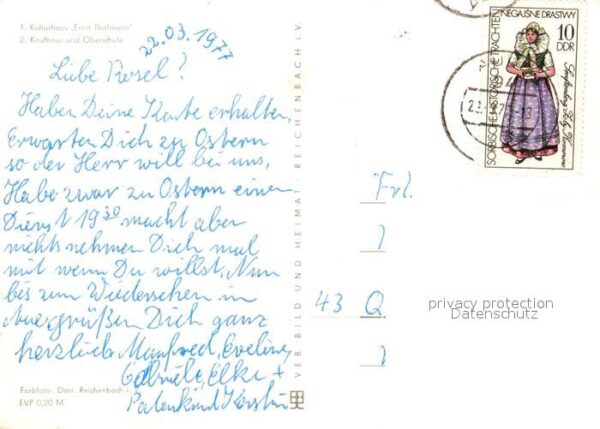 1. Kulturhaus „Ernst Thälmann"
2. Kaufhaus und Oberschule
22.03.1977
Liebe Resel?
Haben Deine Karte erhalten,
Erwarten Dich zu Ostern
so der Herr will bei uns,
Habe zwar zu Ostern einen
Dienst 19³⁰ macht aber
nichts nehmen Dich mal
mit wenn Du willst, Nun
bis zum Wiedersehen in
Aue grüßen Dich ganz
herzlich Manfred, Eveline,
Gabriele, Elke +
Patenkind Kerstin
Farbfoto: Darr, Reichenbach i. V.
EVP 0,20 M
VEB BILD UND HEIMAT REICHENBACH i. V.
SORBISCHE HISTORISCHE TRACHTEN
NEGAJŠNE DRASTWY
10
DDR
23.
Frl.
43 Q
privacy protection
Datenschutz